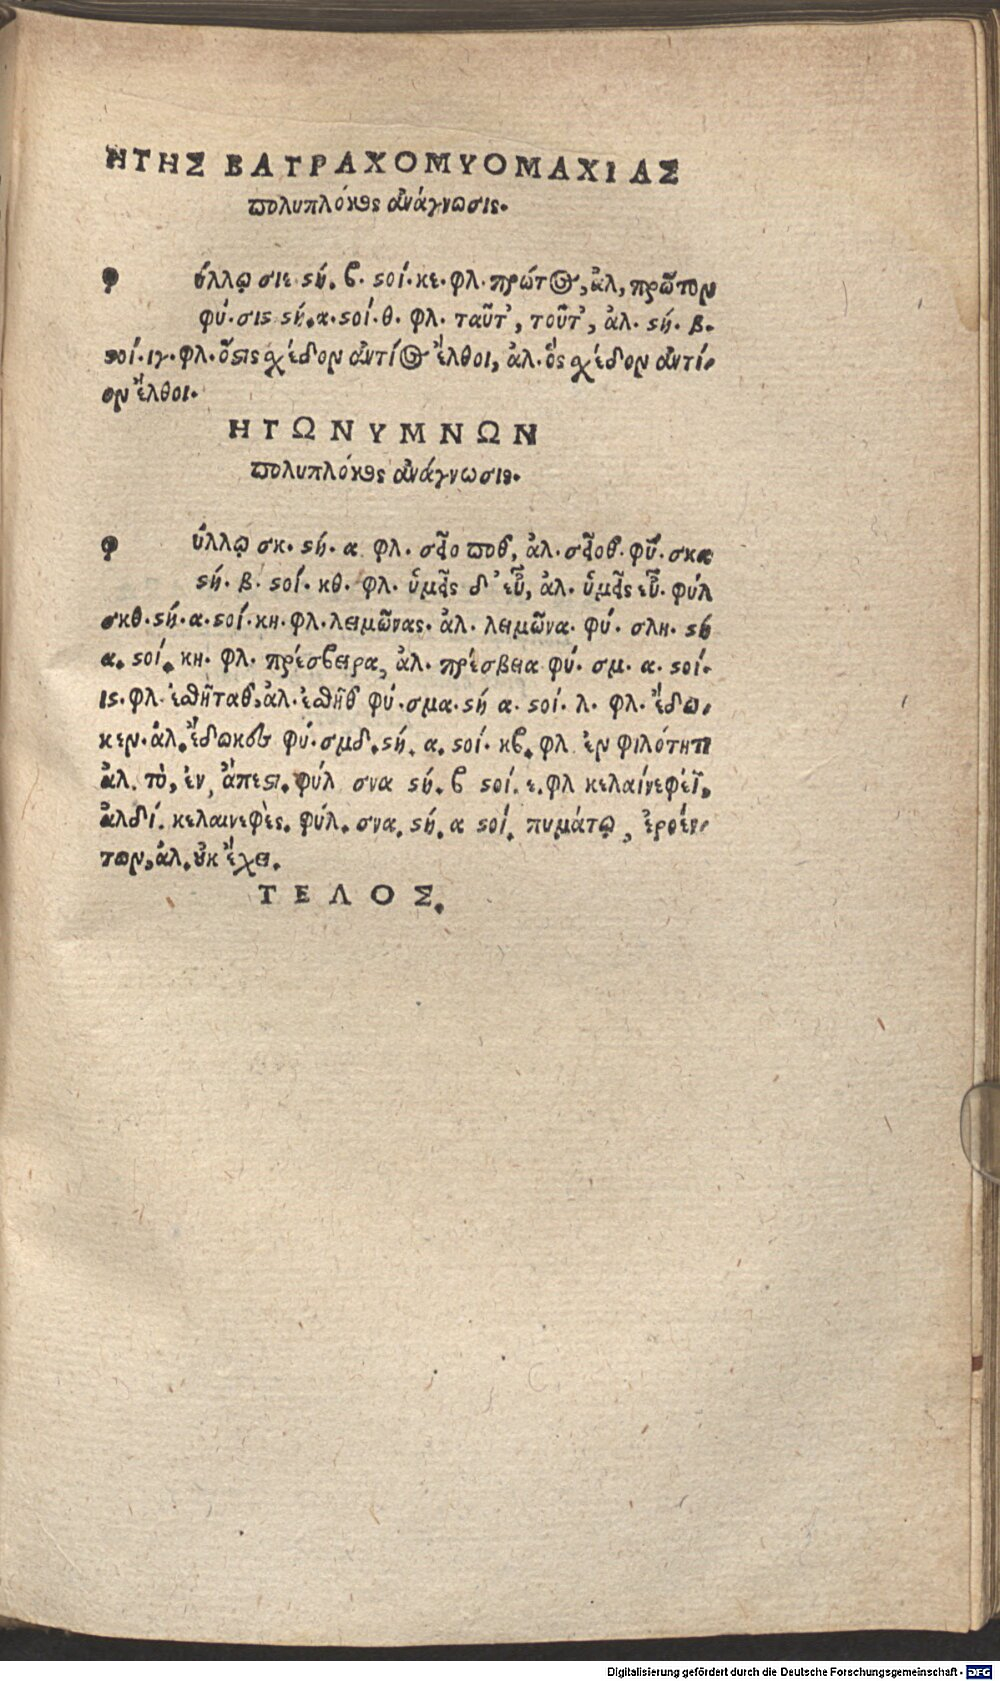 ΗΤΗΣ ΒΑΤΡΑΧΟΜΥΟΜΑΧΙΑΣ
πολυπλόκος ἀνάγνωσις.
φ ύλλῳ σιε ϛή. β. ϛοί. κε. φλ. πρώτος, ἀλ, πρῶτον
φύ. σιϛ ϛή. α. ϛοί. θ. φλ. ταῦτ’, τοῦτ’, ἀλ. ϛή. β.
ϛοί. ιγ. φλ. ὅϛις χέδον ἀντίος ἔλθοι, ἀλ. ὅς χέδον ἀντί
ον ἔλθοι.
ΗΤΩΝ ΥΜΝΩΝ
πολυπλόκος ἀνάγνωσις.
φ ύλλῳ σκ. ϛή. α φλ. ἀλ. φύ. σκα
ϛή. β. ϛοί. κθ. φλ. ὑμᾶς δ’ εὖ, ἀλ. ὑμᾶς εὖ. φύλ
σκθ. ϛή. α. ϛοί. κη. φλ. λειμῶνας. ἀλ. λειμῶνα. φύ. σλη. ϛή
α. ϛοί. κη. φλ. πρέσβειρα, ἀλ. πρέσβεια φύ. σμ. α. ϛοί.
ιϛ. φλ. ἀλ. φύ. σμα. ϛή α. ϛοί. λ. φλ. ἔδω
κεν. ἀλ. φύ. σμδ. ϛή. α. ϛοί. κβ. φλ ἐν φιλότητι
ἀλ. τὸ, ἐν, ἄπεϛι. φύλ σνα ϛή. β ϛοί. ε. φλ κελαίνεφέϊ,
ἀλδί. κελαινεφὲς. φύλ. σνα. ϛή. α ϛοί. πυμάτῳ, ἐροέν
των, ἀλ. οὐκ ἔχει.
ΤΕΛΟΣ.
Digitalisierung gefördert durch die Deutsche Forschungsgemeinschaft - DFG